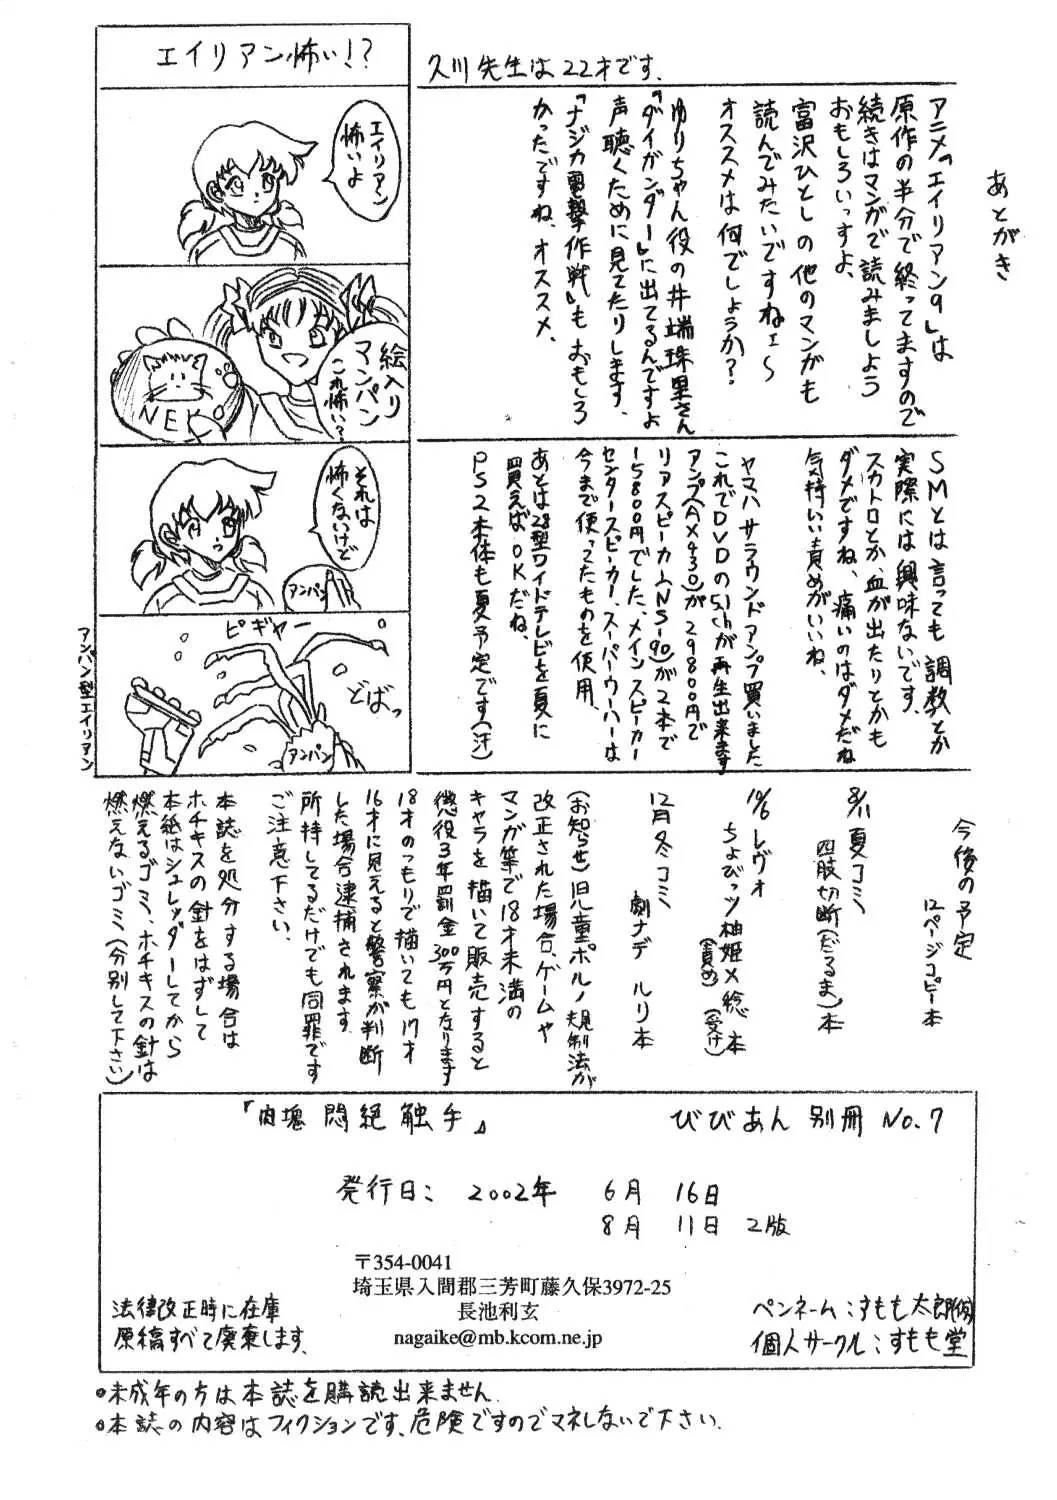 あとがき
久川先生は22才です.
アニメ『エイリアン9』は
原作の半分で終ってますので
続きはマンガで読みましよう
おもしろいっすよ、
富沢ひとしの他のマンガも
読んでみたいですねェ〜
オススメは何でしょうか?
ゆりちゃん役の井端珠里さん
『ダイガンダー』に出てるんですよ
声聴くために見てたりします、
『ナジカ電撃作戦』もおもしろ
かったですね、オススメ、
エイリアン怖い!?
エイリアン
怖いよ
絵入り
マンパン
これ怖い?
NEK
それは
怖くないけど
アンパン
ピギャー
どばっ
アンパン
アンパン型エイリアン
SMとは言っても調教とか
実際には興味ないです。
スカトロとか、血が出たりとかも
ダメですね、痛いのはダメだね
気持いい責めがいいね、
ヤマハサラウンドアンプ買いました
これでDVDの5.1chが再生出来ます
アンプ(AX430)が29800円で
リアスピーカー(NS-90)が2本で
15800円でした、メインスピーカー
センタースピーカー、スーパーウーハーは
今まで使ってたものを使用、
あとは28型ワイドテレビを夏に
買えばOKだね、
PS2本体も夏予定です(汗)
今後の予定
12ページコピー本
8/11夏コミ
四肢切断(だるま)本
10/6レヴォ
ちょびッツ柚姫×稔本
(責め)(受け)
12月冬コミ
劇ナデ ルリ本
(お知らせ)児童ポルノ規制法が
改正された場合、ゲームや
マンガ等で18才未満の
キャラを描いて販売すると
懲役3年罰金300万円となります
18才のつもりで描いても17才
16才に見えると警察が判断
した場合逮捕されます
所持してるだけでも同罪です
ご注意下さい、
本誌を処分する場合は
ホチキスの針をはずして
本紙はシュレッダーしてから
燃えるゴミ、ホチキスの針は
燃えないゴミ(分別して下さい)
『肉塊悶絶触手』 びびあん別冊 No.7
発行日: 2002年 6月 16日
8月 11日 2版
〒354-0041
埼玉県入間郡三芳町藤久保3972-25
長池利玄
nagaike@mb.kcom.ne.jp
法律改正時に在庫
原稿すべて廃棄します.
ペンネーム:すもも太郎(仮)
個人サークル:すもも堂
•未成年の方は本誌を購読出来ません.
•本誌の内容はフィクションです、危険ですのでマネしないで下さい.